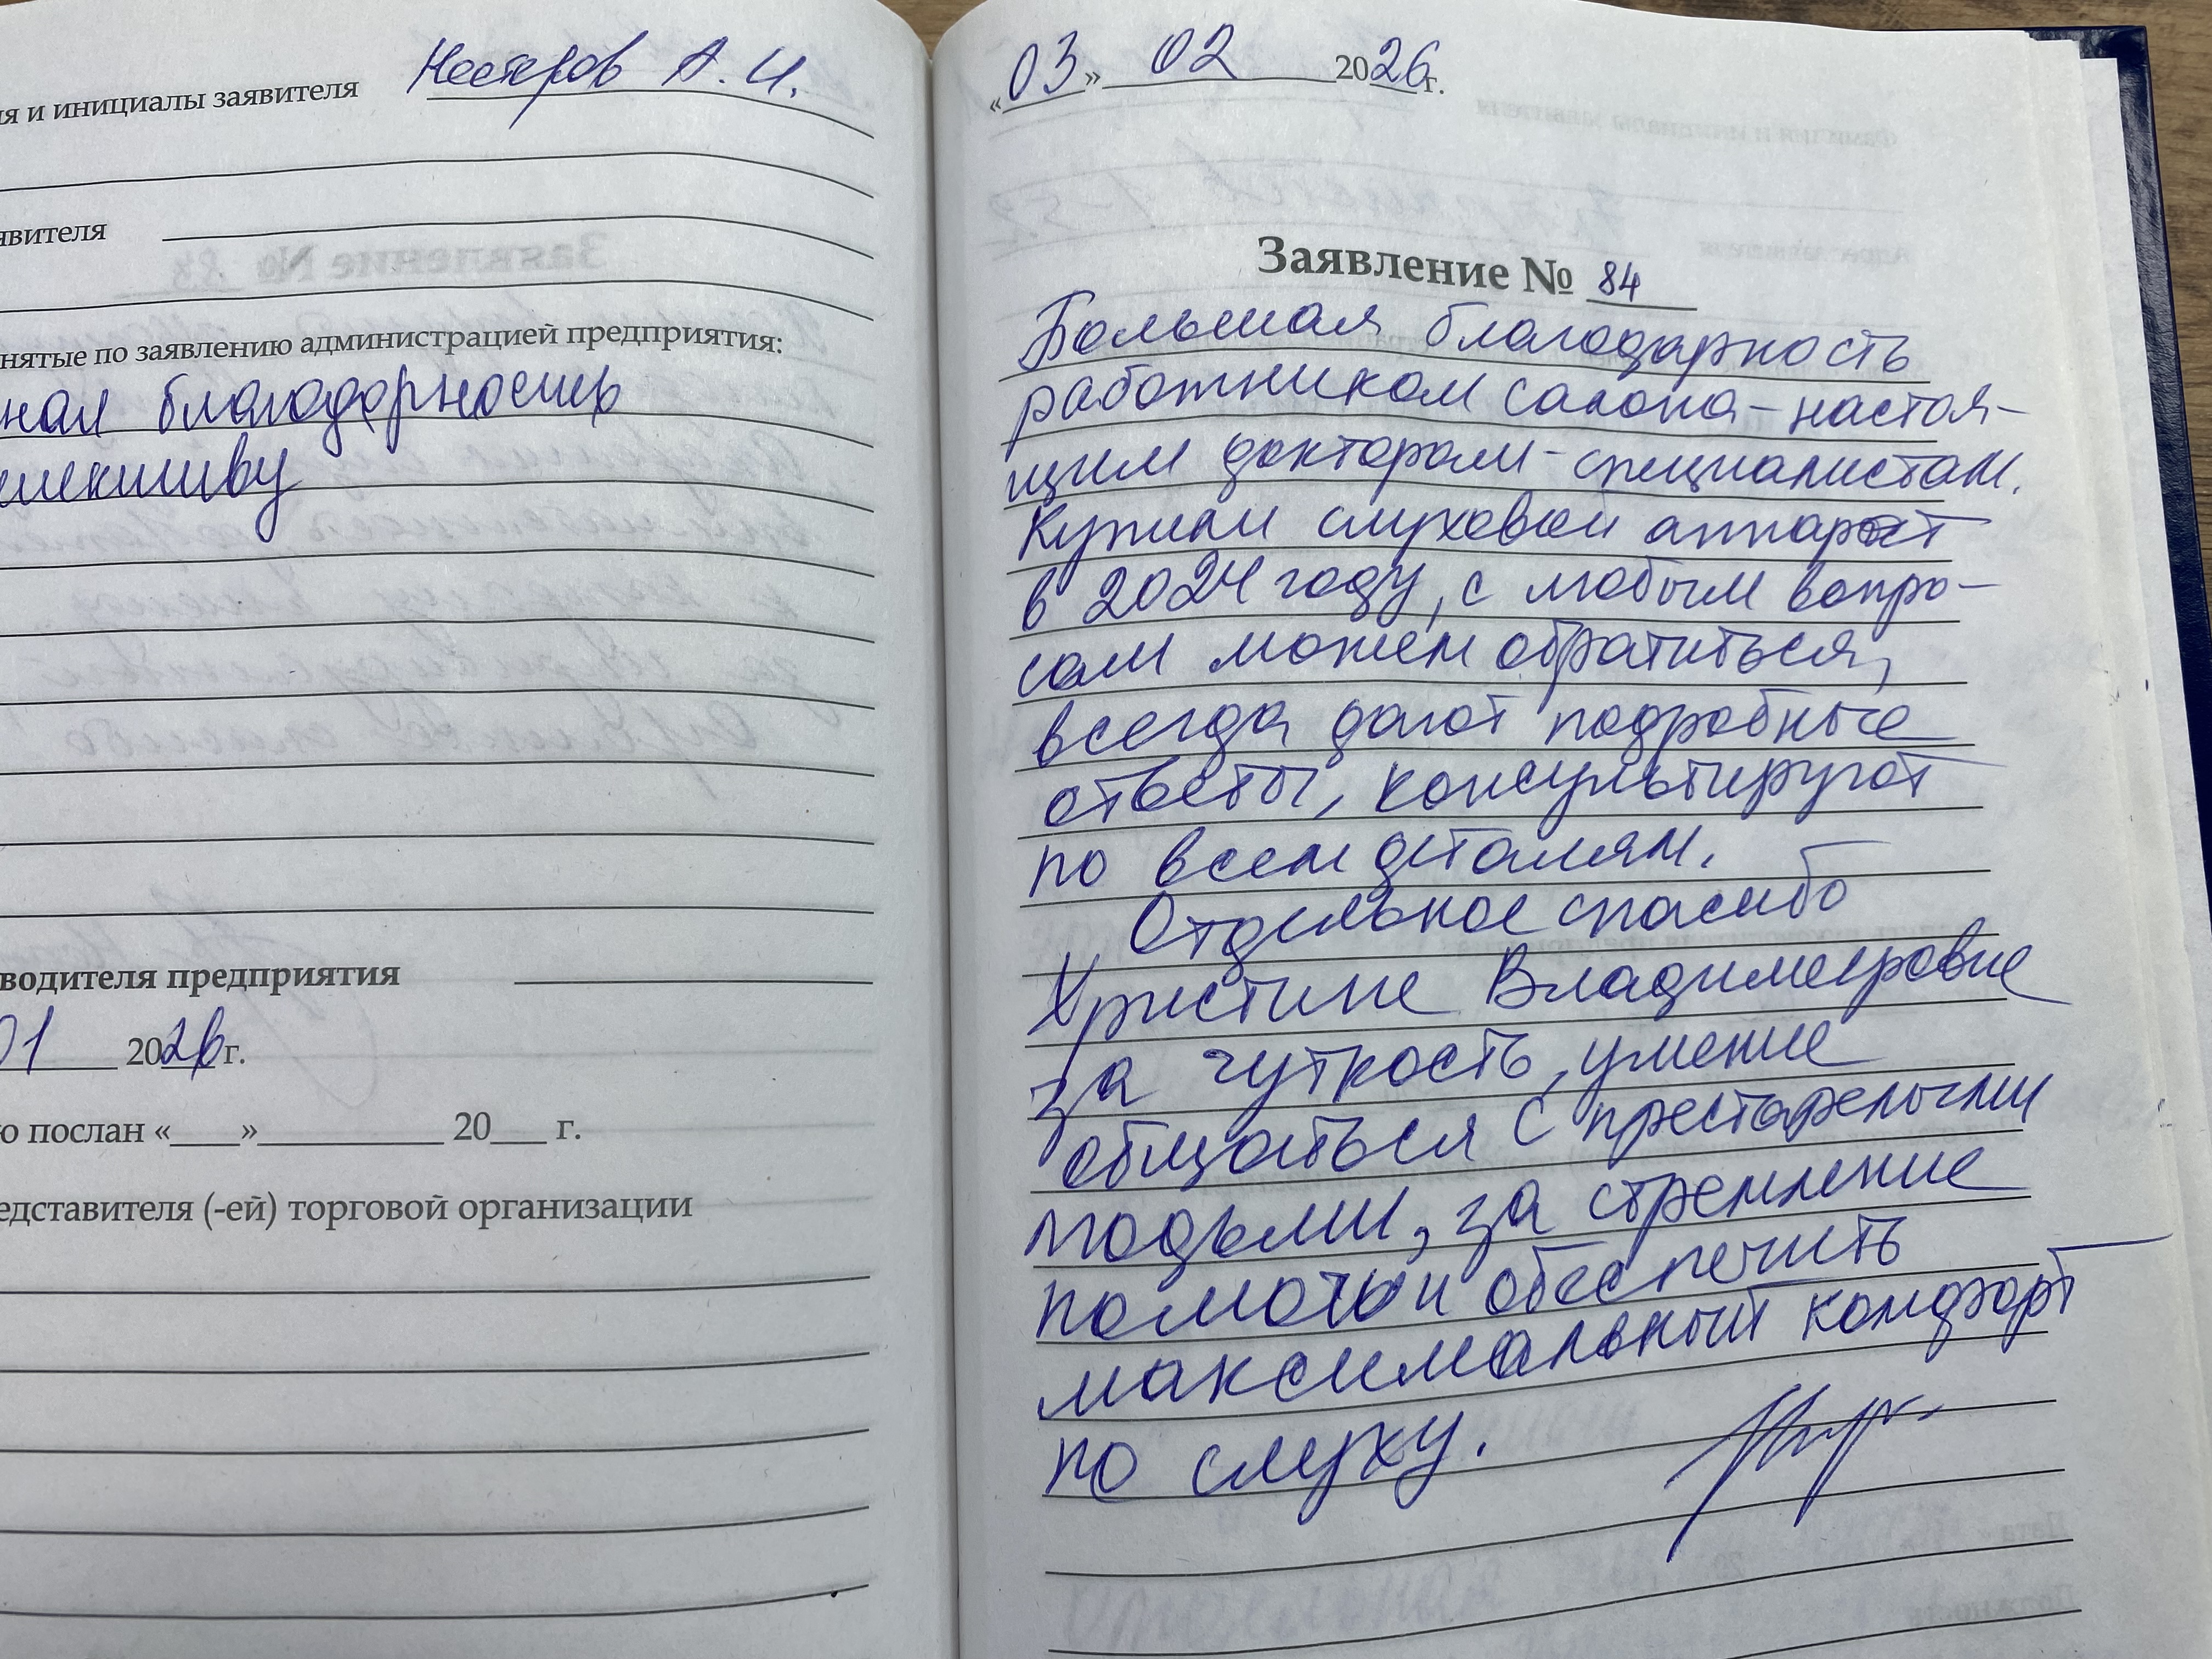 я и инициалы заявителя Нестеров А. И.
явителя
нятые по заявлению администрацией предприятия:
ная благодарность
лективу
водителя предприятия
01 2026 г.
о послан «___»__________ 20___ г.
едставителя (-ей) торговой организации
«03» 02 2026 г.
Заявление № 84
Большая благодарность
работникам салона - настоя-
щим докторам - специалистам.
Купили слуховой аппарат
в 2024 году, с любым вопро-
сом можем обратиться,
всегда дают подробные
ответы, консультируют
по всем деталям.
Отдельное спасибо
Христине Владимировне
за чуткость, умение
общаться с престарелыми
людьми, за стремление
помочь и обеспечить
максимальный комфорт
по слуху.